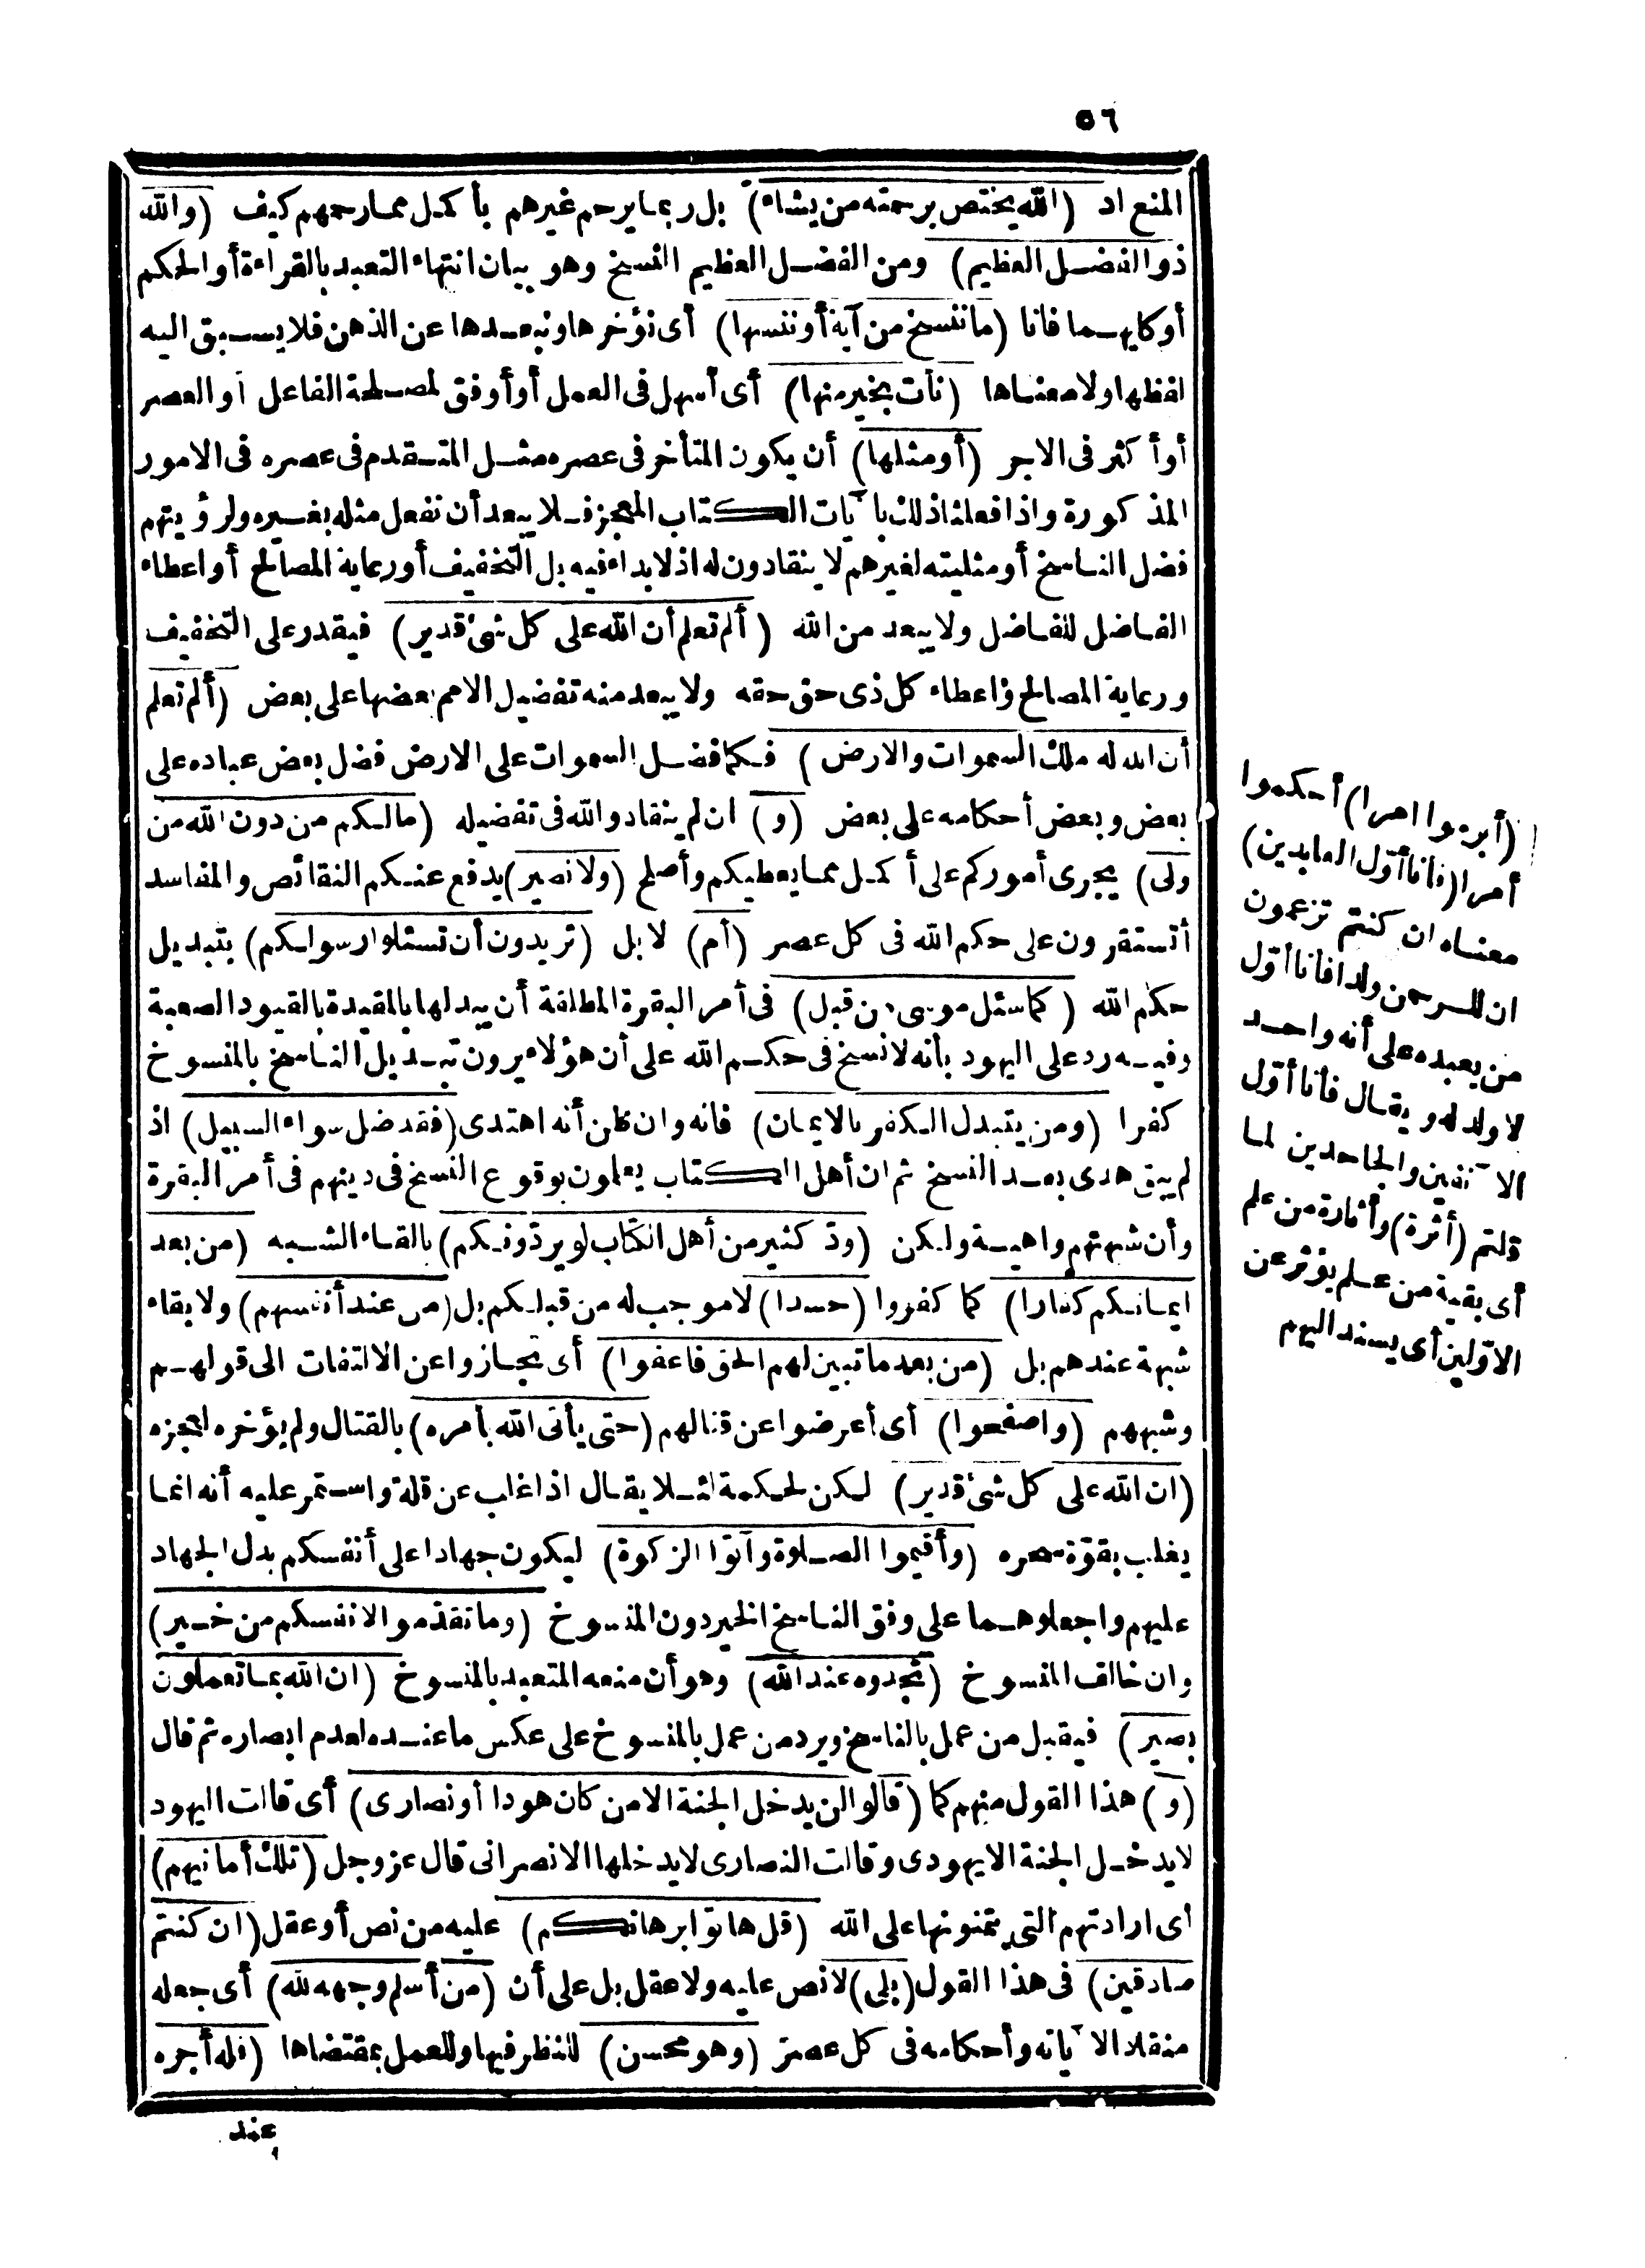 ٥٦
المنع اد (الله يختص برحمته من يشاء) بل ربما يرحم غيرهم بأكمل مما رحمهم كيف (والله
ذو الفضل العظيم) ومن الفضل العظيم النسخ وهو بيان انتهاء التعبد بالقراءة أو الحكم
أوكليهما فانا (ماننسخ من آية أوننسها) أى نؤخرها ونبعدها عن الذهن فلا يسبق اليه
لفظها ولا معناها (نأت بخير منها) أى أسهل فى العمل أو أوفق لمصلحة الفاعل أو العصر
أو أكثر فى الاجر (أو مثلها) أن يكون المتأخر فى عصره مثل المتقدم فى عصره فى الامور
المذكورة واذا فعلنا ذلك بآيات الكتاب المعجز فلا يبعد أن نفعل مثله بغيره ولرؤيتهم
فضل الناسخ أو مثليته لغيرهم لا ينقادون له اذ لا بداء فيه بل التخفيف أو رعاية المصالح أو اعطاء
الفاضل للفاضل ولا يبعد من الله (ألم تعلم أن الله على كل شئ قدير) فيقدر على التخفيف
ورعاية المصالح واعطاء كل ذى حق حقه ولا يبعد منه تفضيل الامم بعضها على بعض (ألم تعلم
أن الله له ملك السموات والارض) فكما فضل السموات على الارض فضل بعض عباده على
بعض وبعض أحكامه على بعض (و) ان لم ينقادوا لله فى تفضيله (مالكم من دون الله من
ولى) يجرى أموركم على أكمل مما يعطيكم وأصلح (ولا نصير) يدفع عنكم النقائص والمفاسد
أتستقرون على حكم الله فى كل عصر (أم) لا بل (تريدون أن تسئلوا رسولكم) بتبديل
حكم الله (كما سئل موسى من قبل) فى أمر البقرة المطلقة أن يبدلها بالمقيدة بالقيود الصعبة
وفيه رد على اليهود بأنه لا نسخ فى حكم الله على أن هؤلاء يرون تبديل الناسخ بالمنسوخ
كفرا (ومن يتبدل الكفر بالايمان) فانه وان ظن أنه اهتدى (فقد ضل سواء السبيل) اذ
لم يبق هدى بعد النسخ ثم ان أهل الكتاب يعلمون بوقوع النسخ فى دينهم فى أمر البقرة
وأن شبهتهم واهية ولكن (ودّ كثير من أهل الكتاب لو يردّونكم) بالقاء الشبه (من بعد
ايمانكم كفارا) كما كفروا (حسدا) لا موجب له من قبلكم بل (من عند أنفسهم) ولا بقاء
شبهة عندهم بل (من بعد ما تبين لهم الحق فاعفوا) أى تجاوزوا عن الالتفات الى قولهم
وشبههم (واصفحوا) أى أعرضوا عن قتالهم (حتى يأتى الله بأمره) بالقتال ولم يؤخره لعجزه
(ان الله على كل شئ قدير) لكن لحكمة لئلا يقال اذا غلب عن قلة واستمر عليه أنه انما
يغلب بقوّة سحره (وأقيموا الصلوة وآتوا الزكوة) ليكون جهادا على أنفسكم بدل الجهاد
عليهم واجعلوهما على وفق الناسخ الخير دون المنسوخ (وما تقدّموا لانفسكم من خير)
وان خالف المنسوخ (تجدوه عند الله) وهو أن منعه المتعبد بالمنسوخ (ان الله بما تعملون
بصير) فيقبل من عمل بالناسخ ويرد من عمل بالمنسوخ على عكس ما عنده لعدم ابصاره ثم قال
(و) هذا القول منهم كما (قالوا لن يدخل الجنة الا من كان هودا أو نصارى) أى قالت اليهود
لا يدخل الجنة الا يهودى وقالت النصارى لا يدخلها الا نصرانى قال عز وجل (تلك أمانيهم)
أى ارادتهم التى يتمنونها على الله (قل هاتوا برهانكم) عليه من نص أو عقل (ان كنتم
صادقين) فى هذا القول (بلى) لا نص عليه ولا عقل بل على أن (من أسلم وجهه لله) أى جعله
منقادا لآياته وأحكامه فى كل عصر (وهو محسن) للنظر فيها وللعمل بمقتضاها (فله أجره
عند
(أبرموا امرا) أحكموا
أمرا (فأنا أوّل العابدين)
معناه ان كنتم تزعمون
ان للرحمن ولدا فأنا أوّل
من يعبده على أنه واحد
لا ولد له ويقال فأنا أوّل
الآنفين والجاحدين لما
قلتم (أثرة) وأثارة من علم
أى بقية من علم يؤثر عن
الاوّلين أى يسند اليهم